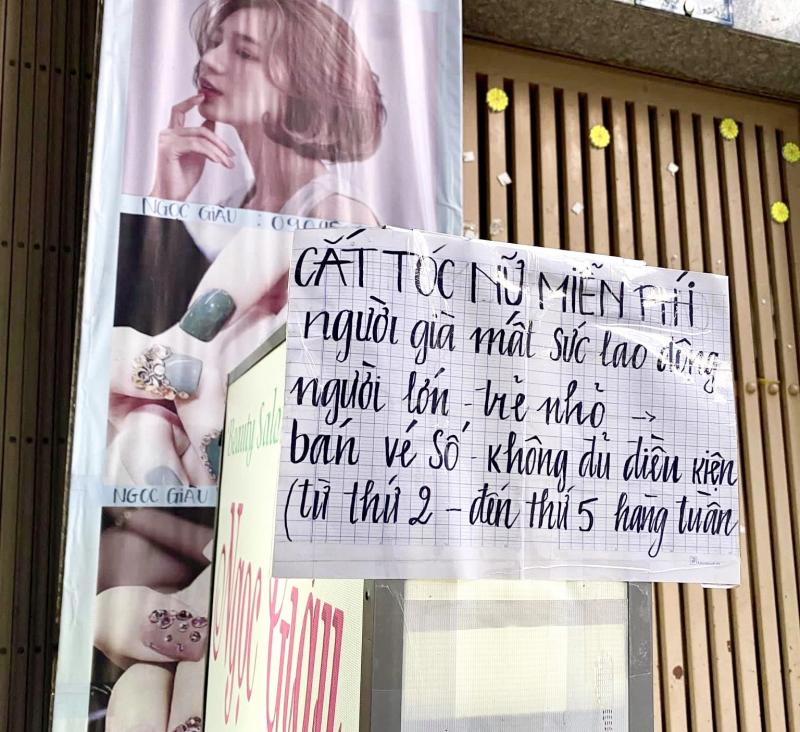 NGỌC GIÀU : 090
CẮT TÓC NỮ MIỄN PHÍ
người già mất sức lao động
người lớn - trẻ nhỏ →
bán vé số - không đủ điều kiện
(từ thứ 2 - đến thứ 5 hàng tuần
Beauty Salo
NGỌC GIÀU
Ngọc Giàu